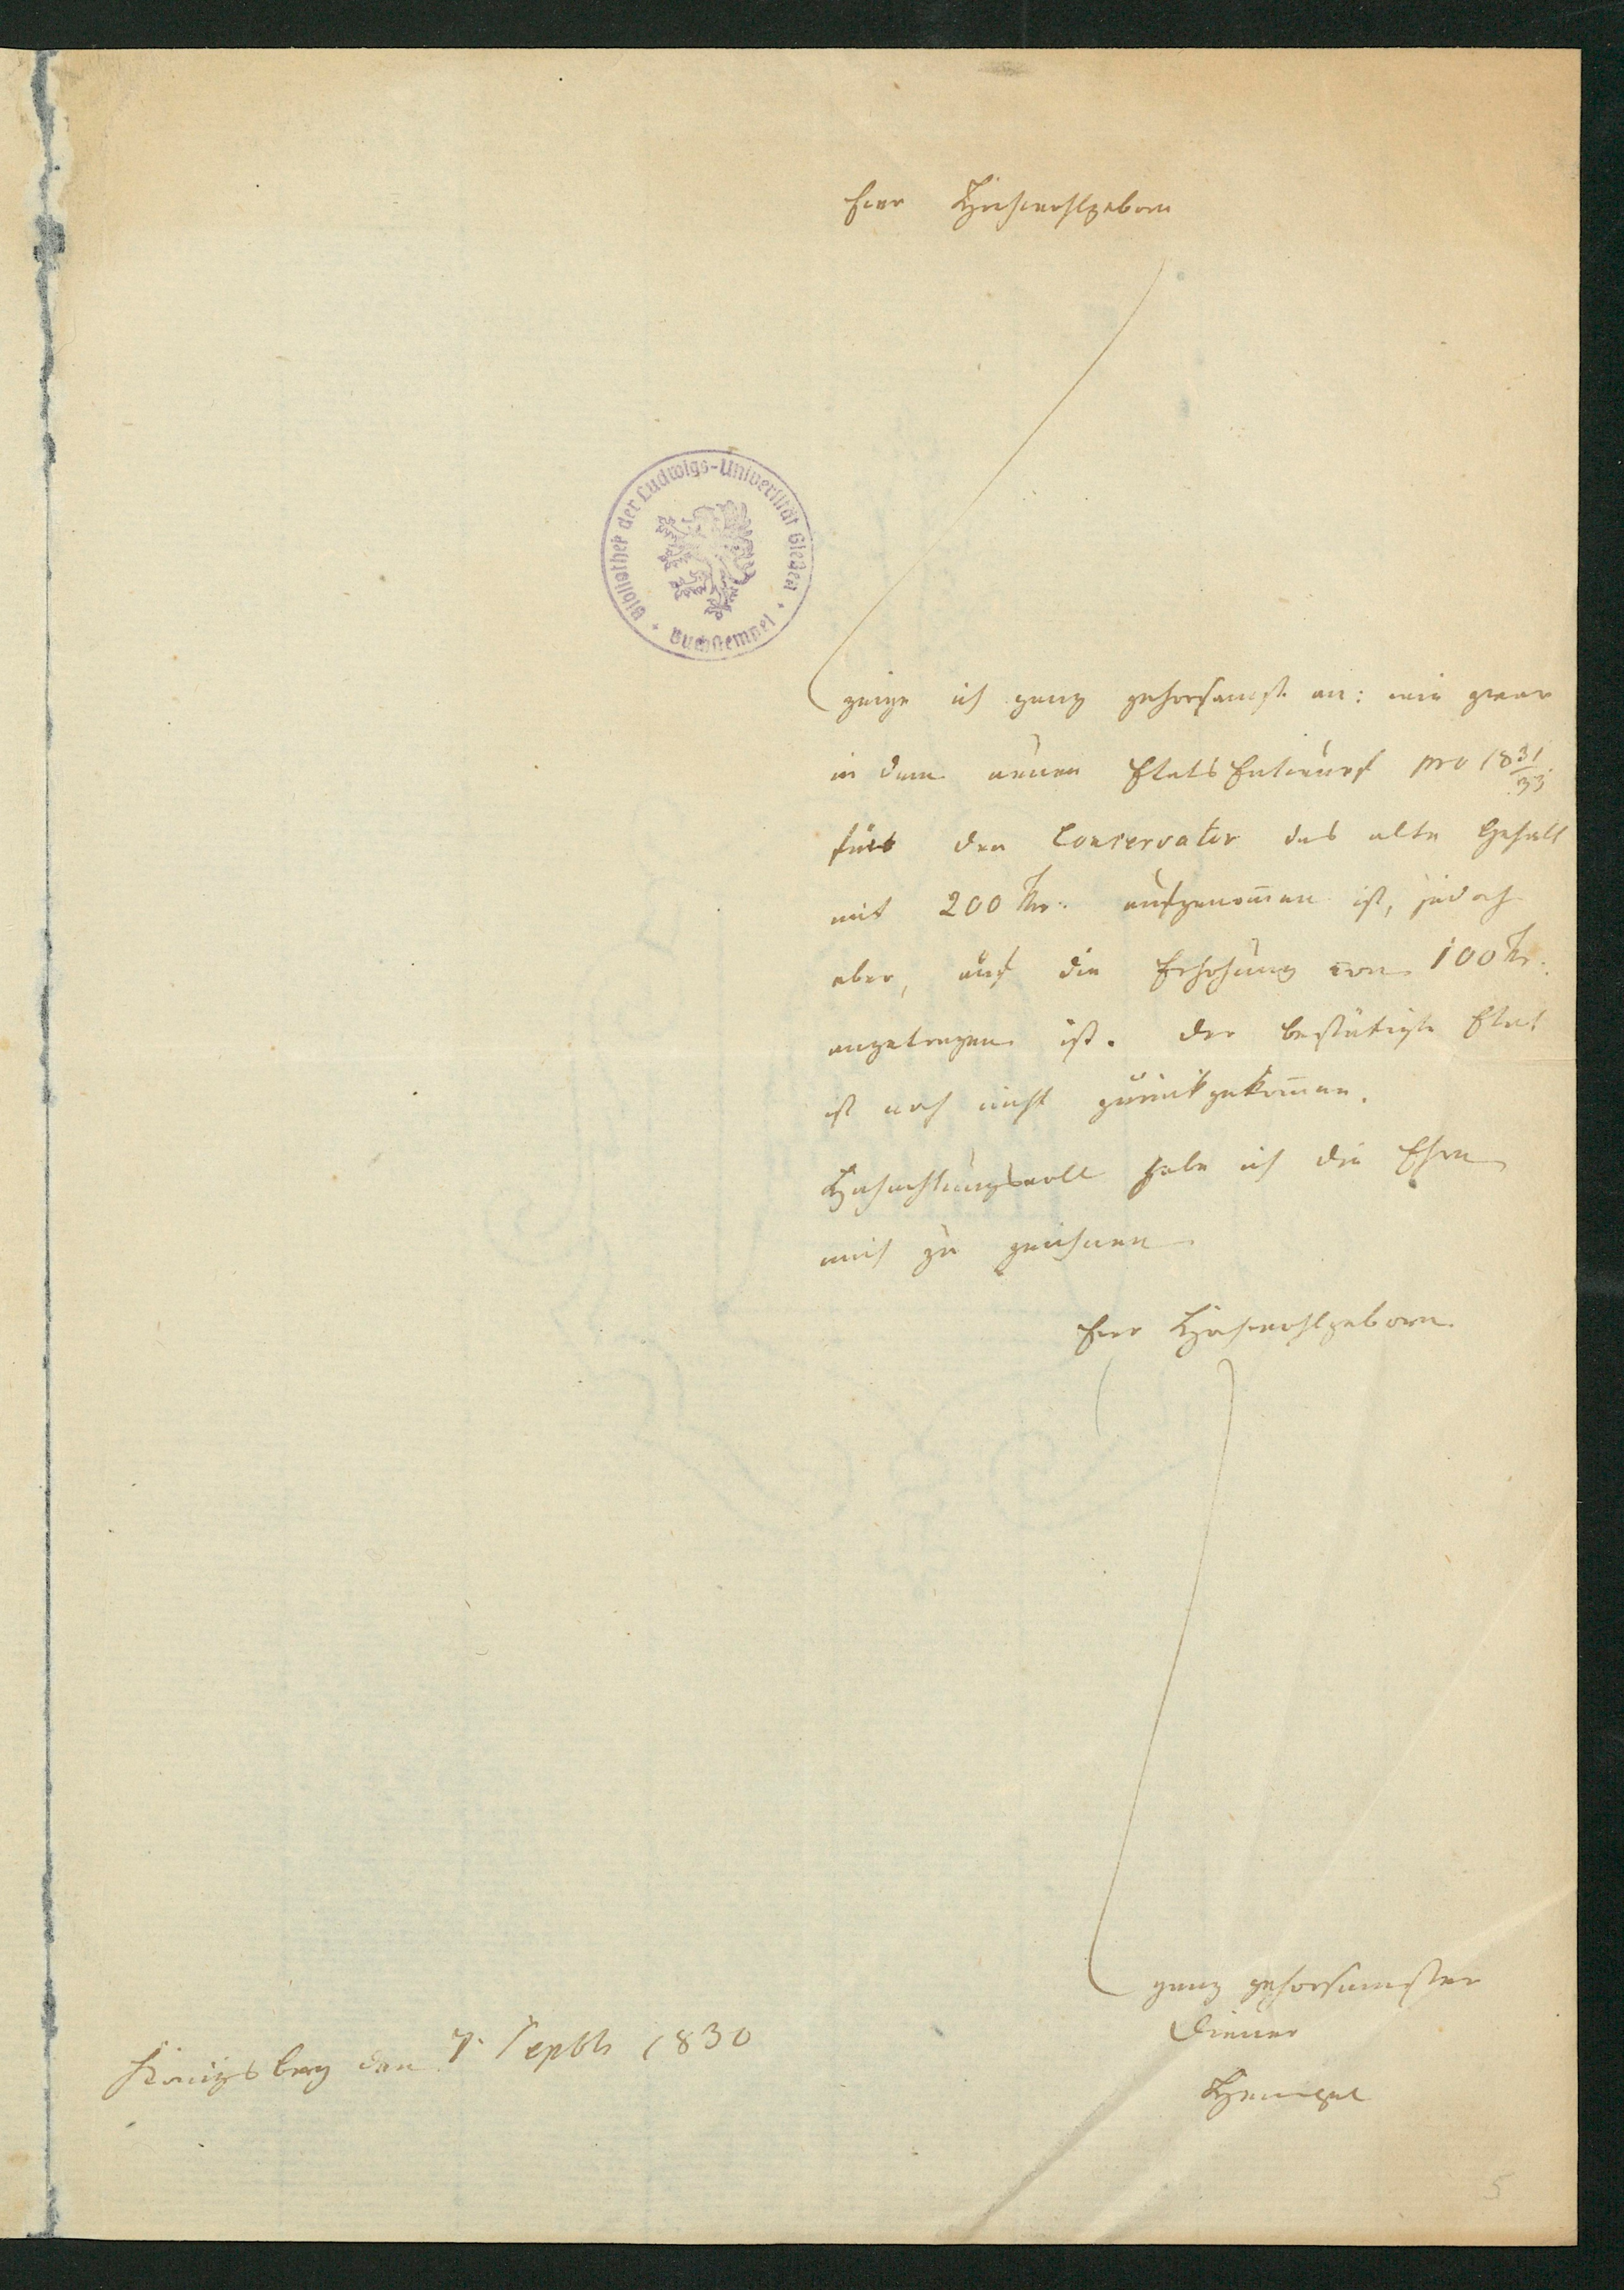 Euer Hochwohlgeboren
Bibliothek der Ludwigs-Universität Gießen
Buchstempel
zeige ich ganz gehorsamst an: wie zwar
in dem neuen Etats Entwurf pro 1831/33
für den Conservator das alte Gehalt
mit 200 Thr. aufgenom̄en ist, jedoch
aber, auf die Erhöhung von 100 Thr.
angetragen ist. Der bestätigte Etat
ist noch nicht zurückgekom̄en.
Hochachtungsvoll habe ich die Ehre
mich zu zeichnen
Euer Hochwohlgeboren
ganz gehorsamster
Diener
Königsberg den 7. Septbr 1830
5